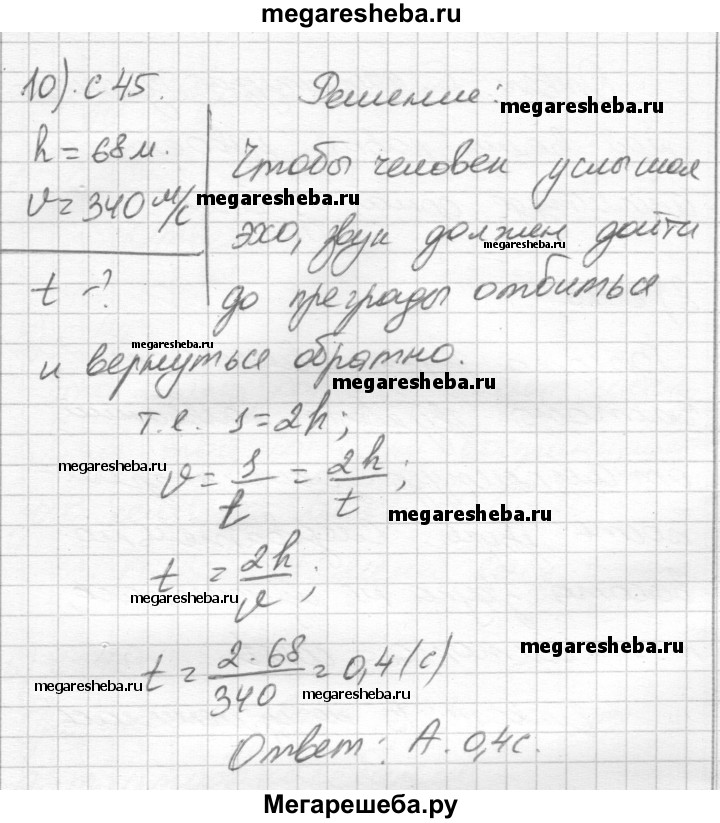 megaresheba.ru
10). с 45.
Решение:
megaresheba.ru
h = 68 м.
Чтобы человек услышал
v = 340 м/с
megaresheba.ru
эхо, звук должен дойти
megaresheba.ru
t - ?
до преграды отбиться
megaresheba.ru
и вернуться обратно.
megaresheba.ru
т.е. s = 2h;
megaresheba.ru
v = s/t = 2h/t;
megaresheba.ru
t = 2h/v;
megaresheba.ru
t = 2·68/340 = 0,4 (с)
megaresheba.ru
megaresheba.ru
megaresheba.ru
Ответ: А. 0,4с.
Мегарешеба.ру